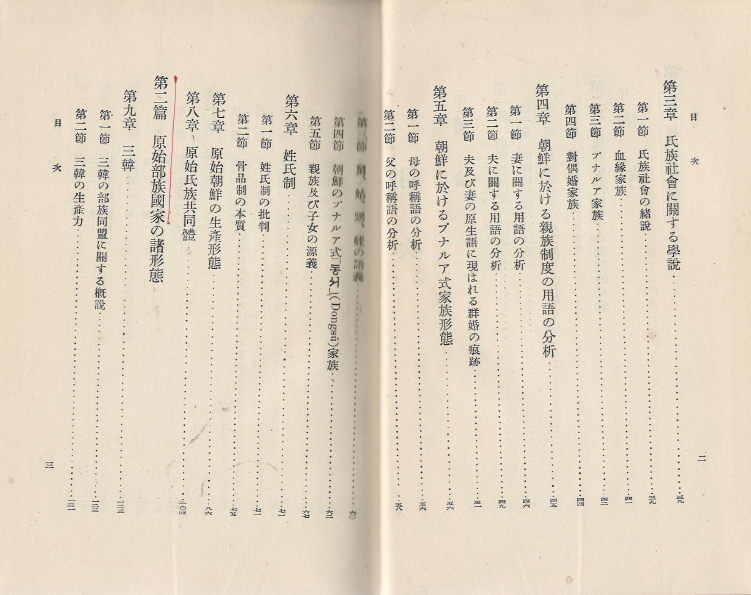 目次
第三章 氏族社會に關する學說……三九
第一節 氏族社會の緒說……三九
第二節 血緣家族……四一
第三節 プナルア家族……四二
第四節 對偶婚家族……四四
第四章 朝鮮に於ける親族制度の用語の分析……四五
第一節 妻に關する用語の分析……四六
第二節 夫に關する用語の分析……四九
第三節 夫及び妻の原生語に現はれる群婚の痕跡……五一
第五章 朝鮮に於けるプナルア式家族形態……五六
第一節 母の呼稱語の分析……五六
第二節 父の呼稱語の分析……五八
二
の語義……六〇
第四節 朝鮮のプナルア式「동서」(Dongsŭ)家族……六二
第五節 親族及び子女の源義……六七
第六章 姓氏制……七一
第一節 姓氏制の批判……七一
第二節 骨品制の本質……七五
第七章 原始朝鮮の生產形態……八六
第八章 原始氏族共同體……一〇四
第二篇 原始部族國家の諸形態
第九章 三韓……一二三
第一節 三韓の部族同盟に關する槪說……一二三
第二節 三韓の生產力……一三一
目次
三